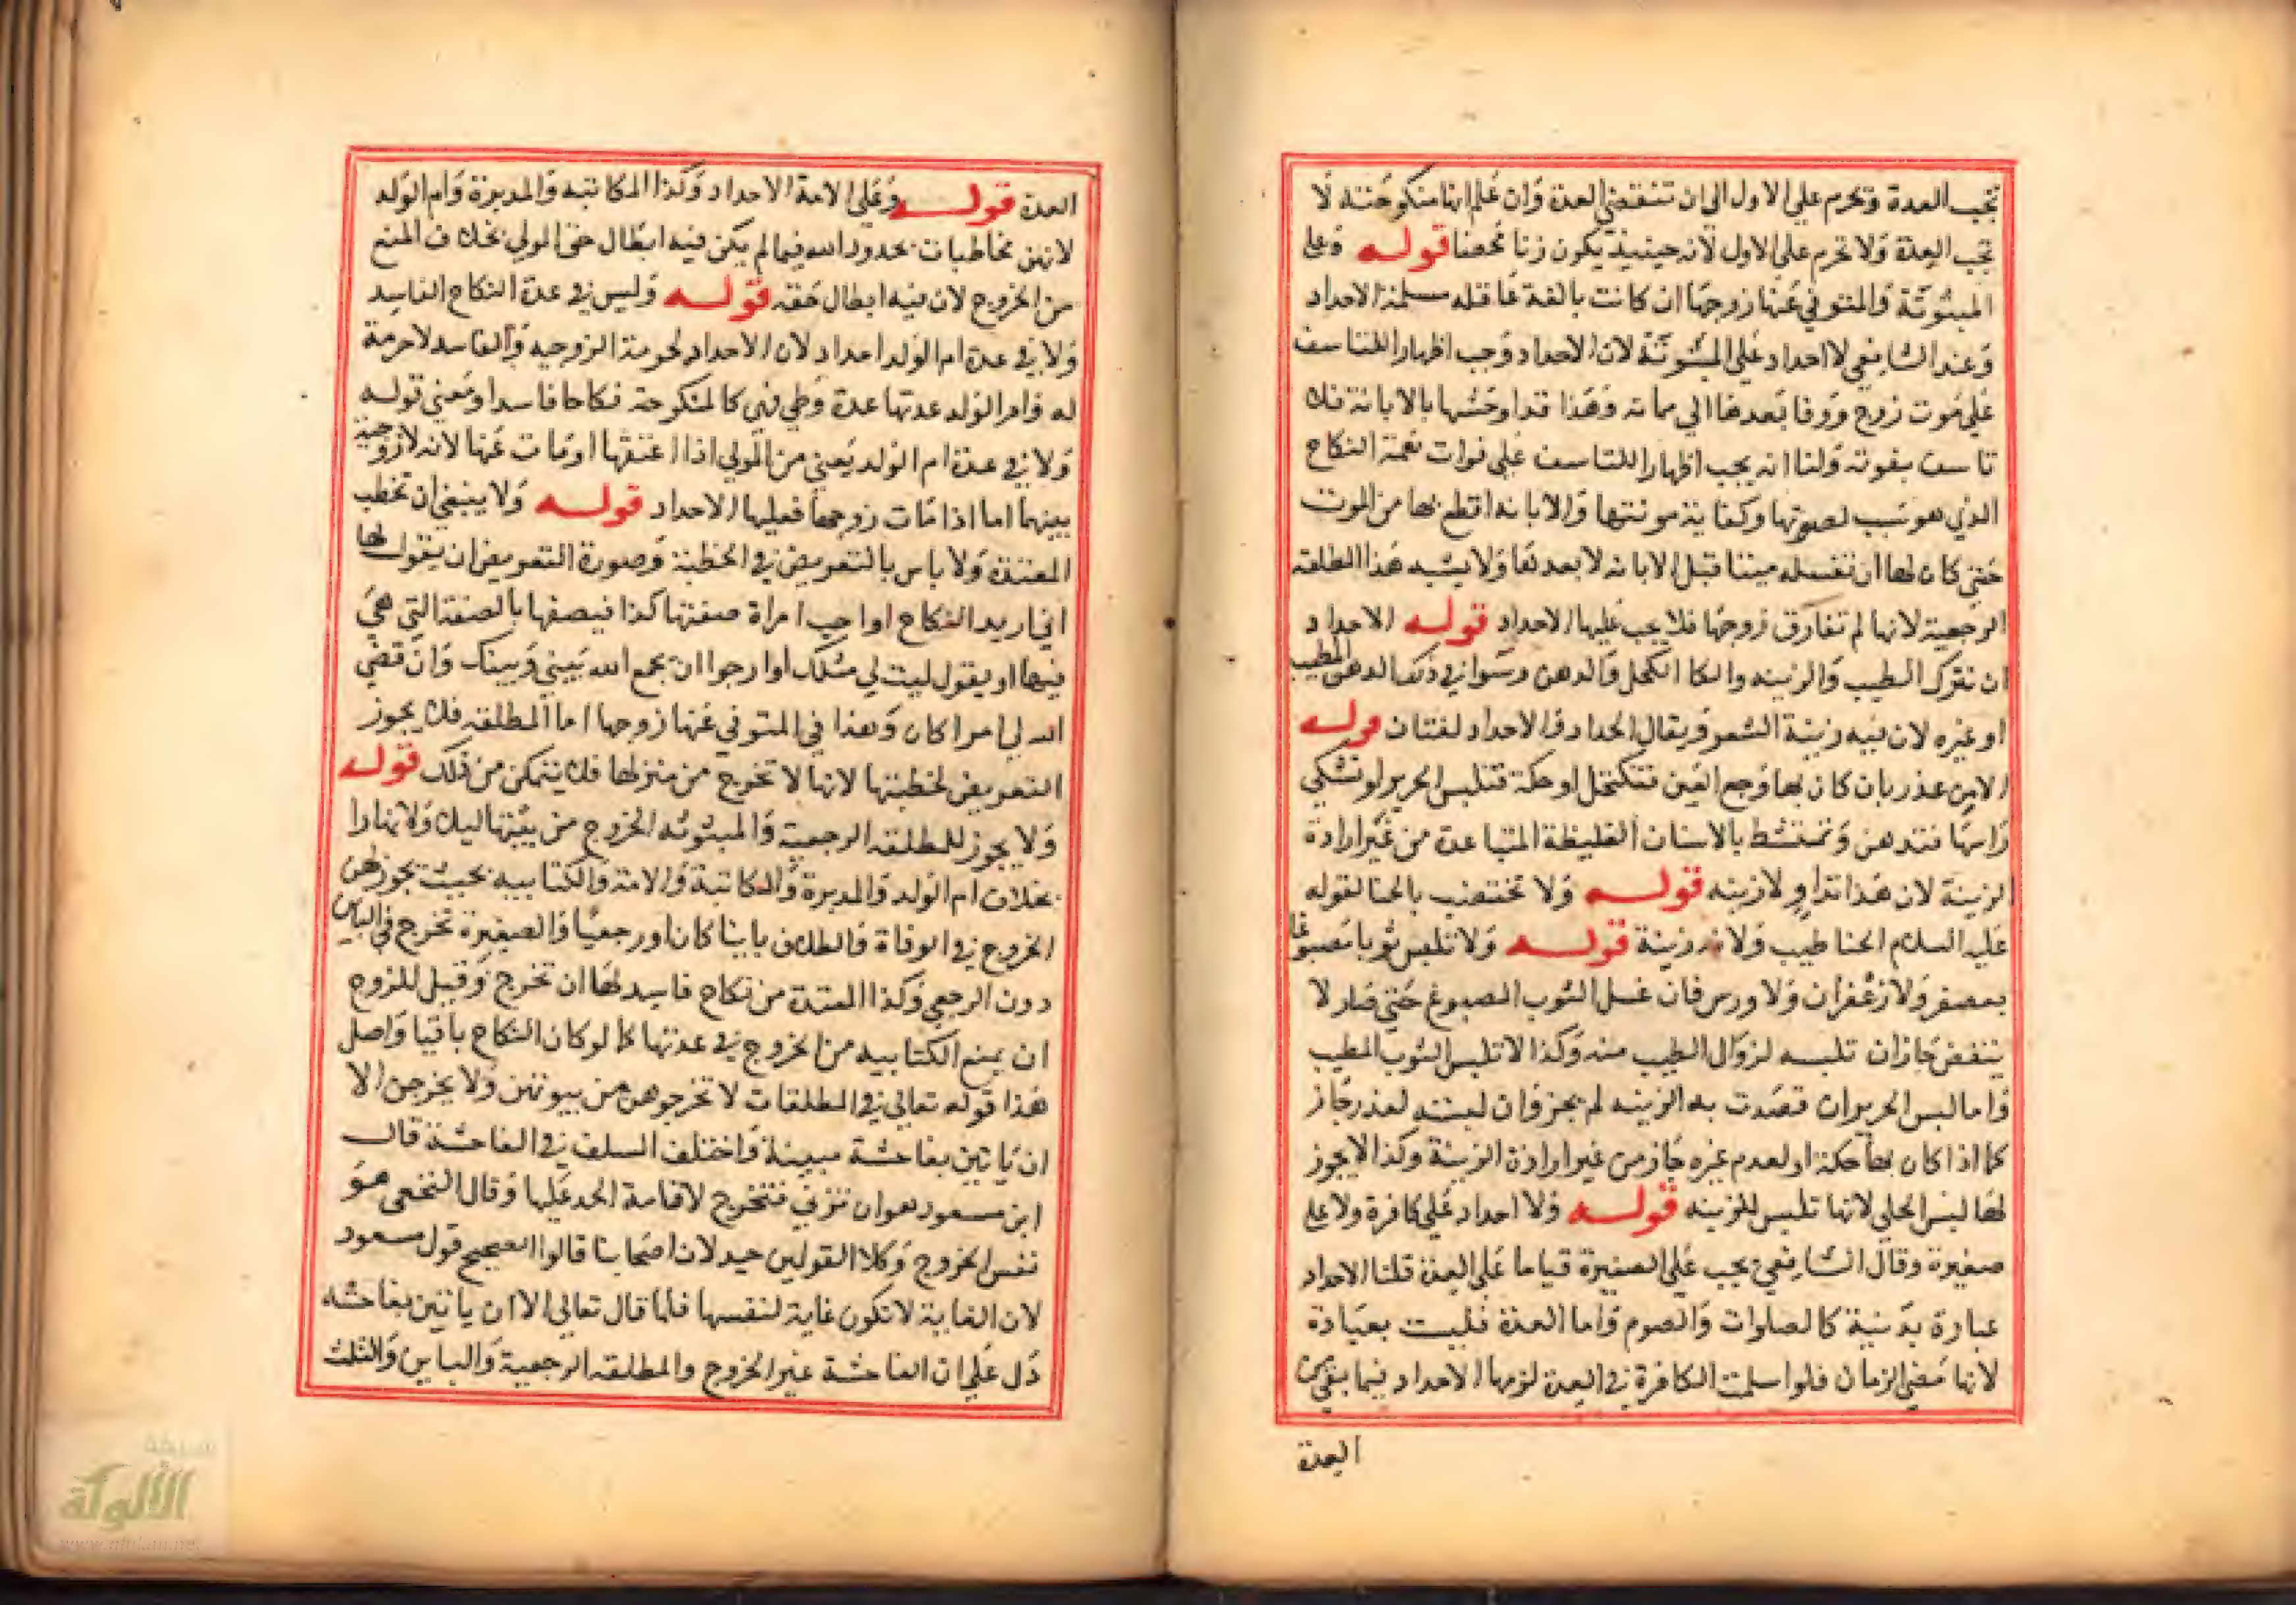 تجب العدة وتحرم علي الاول الي ان تنقضي العدة وان علم انها منكوحته لا
تجب العدة ولا تحرم علي الاول لانه حينيذ يكون زنا محضا قوله وعلي
المبتوتة والمتوفي عنها زوجها ان كانت بالغة عاقله مسلمة الاحداد
وعند الشافعي لا احداد علي المبتوتة لان الاحداد وجب اظهارا للتاسف
علي موت زوج ووفا بعدها الي مماته وهذا قد اوحشها بالابانة فلا
تاسف بفوته ولنا انه يجب اظهارا للتاسف علي فوات نعمة النكاح
الذي هو سبب لصونها وكفاية مونتها والابانه اقطع لها من الموت
حتي كان لها ان تغسله ميتا قبل الابانه لا بعدها ولا يشبه هذا المطلقه
الرجعية لانها لم تفارق زوجها فلا يجب عليها الاحداد قوله الاحداد
ان تترك الطيب والزينه والكحل والدهن وسوا في ذلك الدهن المطيب
او غيره لان فيه زينة الشعر ويقال الحداد والاحداد لغتان قوله
الا من عذر بان كان بها وجع العين فتكتحل او حكة فتلبس الحرير او تشتكي
راسها فتدهن وتمتشط بالاسنان الغليظة المتباعدة من غير ارادة
الزينة لان هذا تداو لا زينه قوله ولا تختضب بالحنا لقوله
عليه السلام الحنا طيب ولانه زينة قوله ولا تلبس ثوبا مصبوغا
بعصفر ولا زعفران ولا ورس فان غسل الثوب المصبوغ حتي صار لا
ينفض جاز ان تلبسه لزوال الطيب منه وكذا لا تلبس الثوب المطيب
واما لبس الحرير ان قصدت به الزينه لم يجز وان لبسته لعذر جاز
كما اذا كان بها حكة او لعدم غيره جاز من غير ارادة الزينة وكذا لا يجوز
لها لبس الحلي لانها تلبس للزينه قوله ولا احداد علي كافرة ولا علي
صغيرة وقال الشافعي يجب علي الصغيرة قياما علي العدة قلنا الاحداد
عبارة بدنية كالصلوات والصوم واما العدة فليست بعبادة
لانها مضي الزمان فلو اسلمت الكافرة في العدة لزمها الاحداد فيما بقي من
العدة
العدة قوله وعلي الامة الاحداد وكذا المكاتبه والمدبرة وام الولد
لانهن مخاطبات بحدود الله فيما لم يكن فيه ابطال حق المولي بخلاف المنع
من الخروج لان فيه ابطال حقه قوله وليس في عدة النكاح الفاسد
ولا في عدة ام الولد احداد لان الاحداد لحرمة الزوجيه والفاسد لا حرمة
له وام الولد عدتها عدة وطي فهي كالمنكوحة نكاحا فاسدا ومعني قوله
ولا في عدة ام الولد يعني من المولي اذا اعتقها او مات عنها لانه لا زوجية
بينهما اما اذا مات زوجها فعليها الاحداد قوله ولا ينبغي ان تخطب
المعتدة ولا باس بالتعريض في الخطبة وصورة التعريض ان يقول لها
اني اريد النكاح او احب امراة صفتها كذا فيصفها بالصفة التي هي
فيها او يقول ليت لي مثلك او ارجوا ان يجمع الله بيني وبينك وان قضي
الله لي امرا كان وهذا في المتوفي عنها زوجها اما المطلقه فلا يجوز
التعريض لخطبتها لانها لا تخرج من منزلها فلا يتمكن من ذلك قوله
ولا يجوز للمطلقه الرجعية والمبتوته الخروج من بيتها ليلا ولا نهارا
بخلاف ام الولد والمدبرة والمكاتبة والامة والكتابيه بحيث يجوز لهن
الخروج في الوفاة والطلاق باينا كان او رجعيا والصغيرة تخرج في الباين
دون الرجعي وكذا المعتدة من نكاح فاسد لها ان تخرج وقيل للزوج
ان يمنع الكتابيه من الخروج في عدتها كما لو كان النكاح باقيا واصل
هذا قوله تعالي في المطلقات لا تخرجوهن من بيوتهن ولا يخرجن الا
ان ياتين بفاحشة مبينة واختلف السلف في الفاحشة قال
ابن مسعود هو ان تزني فتخرج لاقامة الحد عليها وقال النخعي هو
نفس الخروج وكلا القولين جيد لان اصحابنا قالوا الصحيح قول مسعود
لان الغاية لا تكون غاية لنفسها فلما قال تعالي الا ان ياتين بفاحشه
دل علي ان الفاحشة غير الخروج والمطلقه الرجعية والباين والثلث
شبكة
الألوكة
www.alukah.net